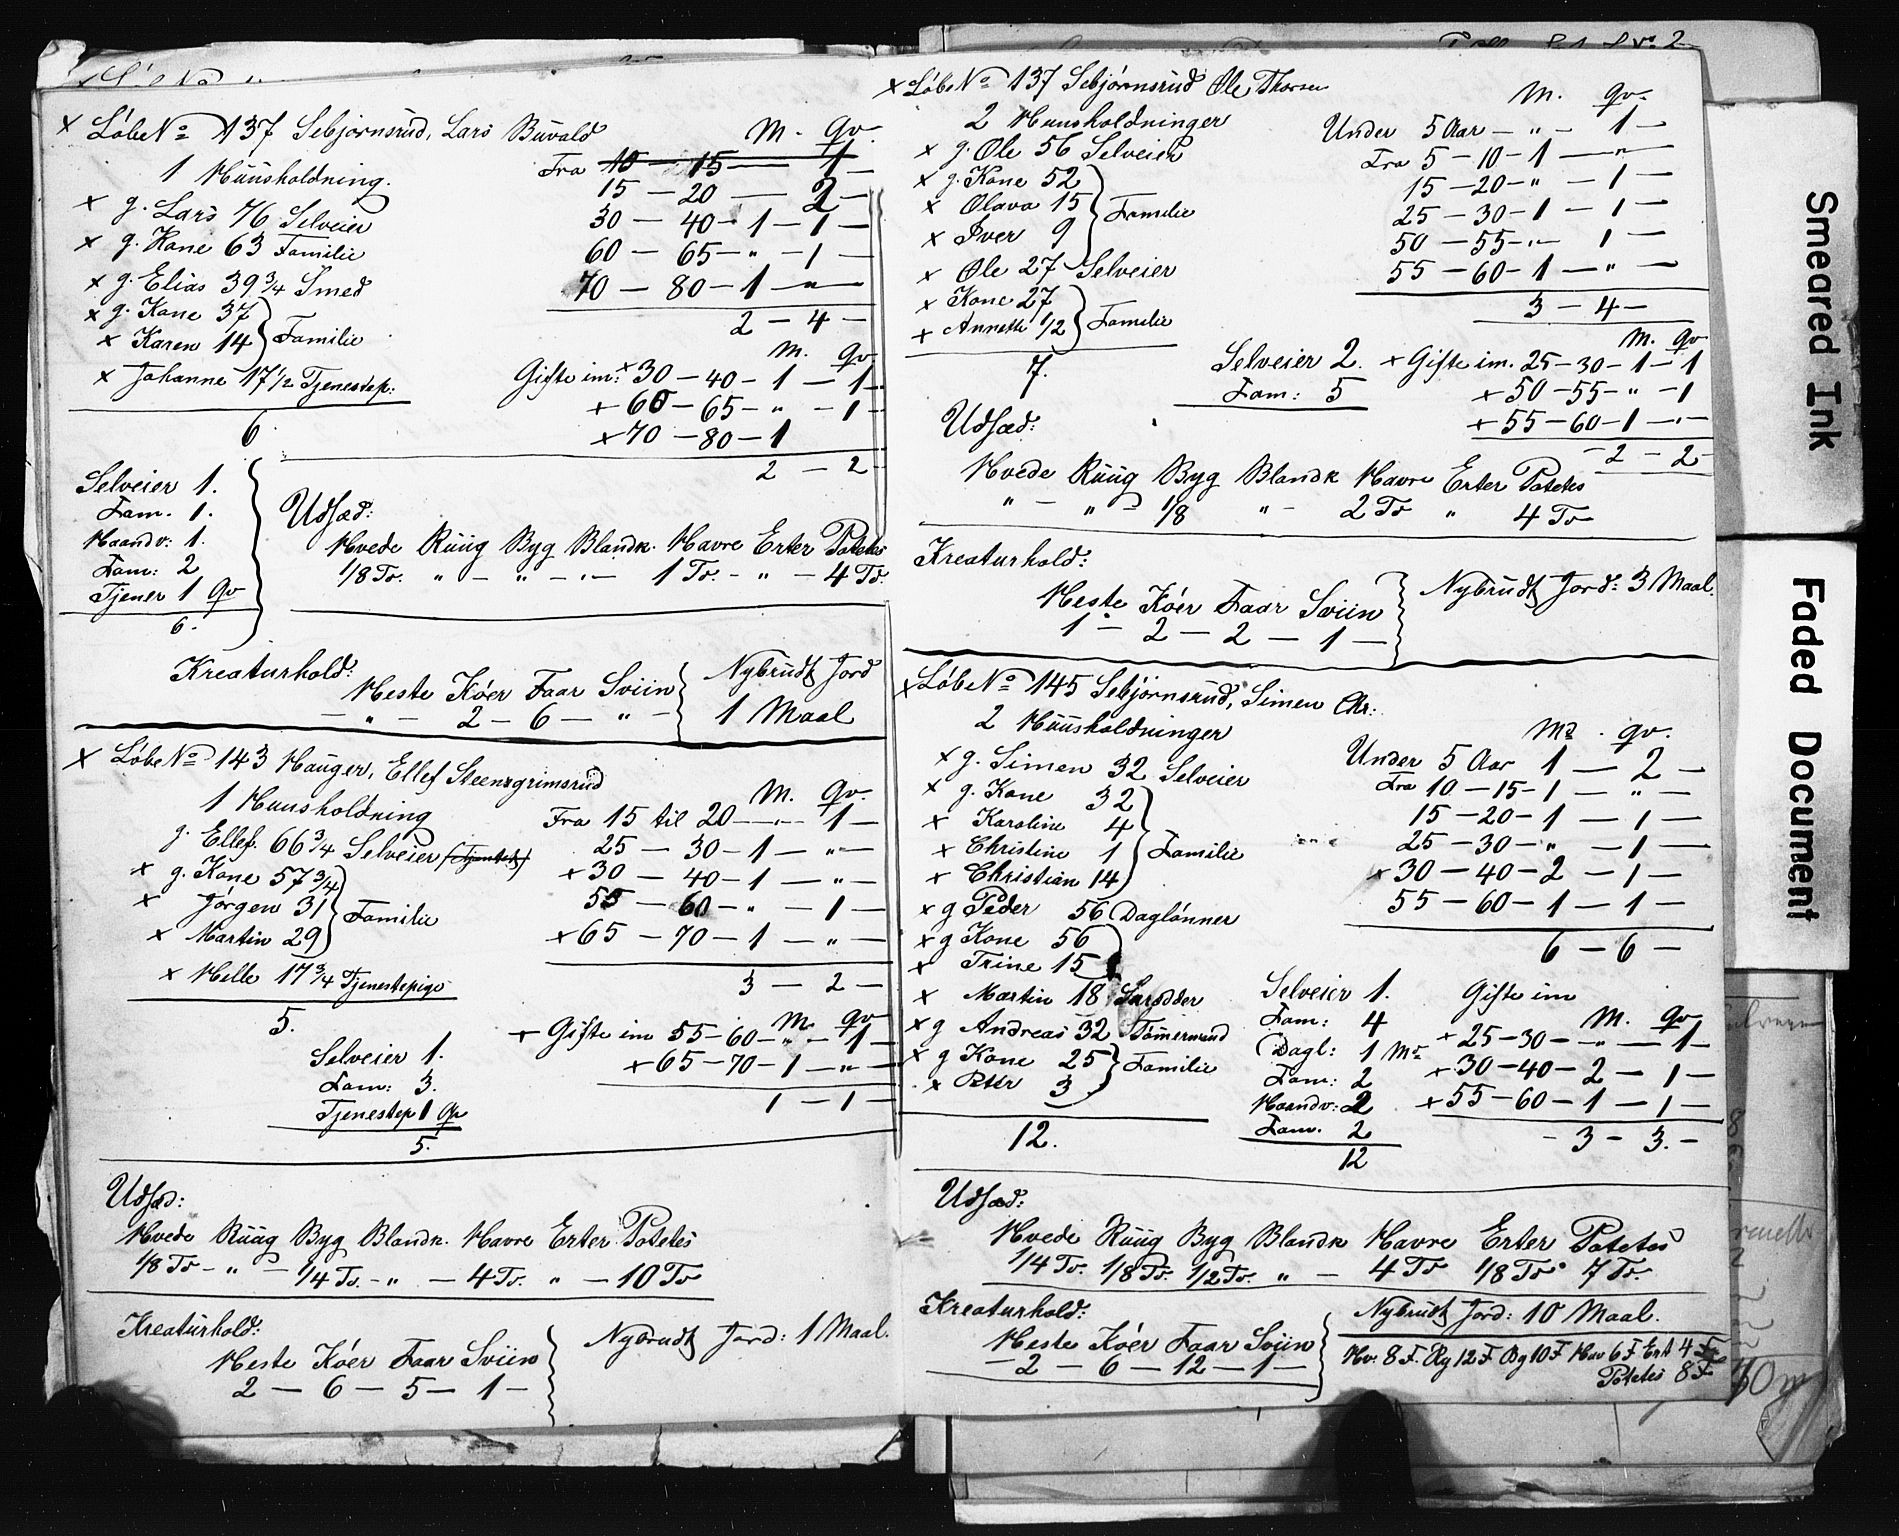 x Løbe No 137 Sebjørnsrud, Lars Buvald
1 Huusholdning.
x g. Lars 76 Selveier
x g. Kone 63 Familie
x g. Elias 39 3/4 Smed
x g. Kone 37 } Familie
x Karen 14
x Johanne 17 1/2 Tjenestep:
6
M. Qv.
Fra 10 — 15 — 1 —
15 — 20 — 2 —
30 — 40 — 1 — 1 —
60 — 65 — " — 1 —
70 — 80 — 1 — " —
2 — 4 —
M. Qv
Gifte im: x 30 — 40 — 1 — 1 —
+ 60 — 65 — " — 1 —
x 70 — 80 — 1
2 — 2
Selveier 1.
Fam. 1.
Haandv: 1.
Fam: 2
Tjener 1 Qv
6.
Udsæd:
Hvede Ruug Byg Blandk. Havre Erter Potetes
1/8 Tr. " — " — " — 1 Tr. — " — 4 Tr.
Kreaturhold:
Heste Köer Faar Sviin
— " — 2 — 6 — " —
Nybrudt Jord
1 Maal
x Løbe No 143 Hauger, Ellef Steensgrimsrud
1 Huusholdning
g. Ellef. 66 3/4 Selveier
x g. Kone 57 3/4
x Jørgen 31 } Familie
x Martin 29
x Helle 17 3/4 Tjenestepige
5.
M. Qv.
Fra 15 til 20 — " — 1 —
25 — 30 — 1 — " —
+ 30 — 40 — 1 — " —
55 — 60 — " — 1 —
+ 65 — 70 — 1 — " —
3 — 2 —
M. Qv
+ Gifte im 55 — 60 — " — 1 —
+ 65 — 70 — 1 — " —
1 — 1 —
Selveier 1.
Fam: 3.
Tjenestep 1 Qv
5.
Udsæd:
Hvede Ruug Byg Blandk. Havre Erter Potetes
1/8 Tr — " — 1/4 Tr. — " — 4 Tr. " — 10 Tr
Kreaturhold:
Heste Köer Faar Sviin
2 — 6 — 5 — 1 —
Nybrudt Jord: 1 Maal.
x Løbe No 137 Sebjørnsrud Ole Thorsen
2 Huusholdninger
x g. Ole 56 Selveier
x g. Kone 52
x Olava 15 } Familie
x Iver 9
x Ole 27 Selveier
x Kone 27 } Familie
+ Annette 1/2
7.
M. Qv.
Under 5 Aar — " — 1 —
Fra 5 — 10 — 1 — " —
15 — 20 — " — 1 —
25 — 30 — 1 — 1 —
50 — 55 — " — 1 —
55 — 60 — 1 — " —
3 — 4 —
Selveier 2.
Fam: 5
M. Qv
+ Gifte im. 25 — 30 — 1 — 1
x 50 — 55 — " — 1
+ 55 — 60 — 1 — " —
— 2 — 2 —
Udsæd:
Hvede Ruug Byg Blandk Havre Erter Potetes
" — " — 1/8 " — 2 Tr " 4 Tr
Kreaturhold:
Heste Köer Faar Sviin
1 — 2 — 2 — 1 —
Nybrudt Jord: 3 Maal.
x Løbe No 145 Sebjørnsrud, Simen Chr:
2 Huusholdninger
x g. Simen 32 Selveier
x g. Kone 32
x Karoline 4
x Christine 1 } Familie
+ Christian 14
x g Peder 56 Daglønner
x g Kone 56
x Trine 15
x Martin 18
x g Andreas 32 Tømermand
x g Kone 25 } Familie
x Petter 3
12.
Md. Qv.
Under 5 Aar 1 — 2 —
Fra 10 — 15 — 1 — " —
15 — 20 — 1 — 1 —
25 — 30 — " — 1 —
x 30 — 40 — 2 — 1 —
55 — 60 — 1 — 1 —
6 — 6 —
Selveier 1.
Fam: 4
Dagl: 1 Md
Fam: 2
Haandv: 2
Fam. 2
12
Gifte im
M. Qv
x 25 — 30 — " — 1 —
x 30 — 40 — 2 — 1 —
+ 55 — 60 — 1 — 1 —
— 3 — 3. —
Udsæd:
Hvede Ruug Byg Blandk Havre Erter Potetes
1/4 Tr. 1/8 Tr. 1/2 Tr. " — 4 Tr 1/8 Tr. 7 Tr.
Kreaturhold:
Heste Köer Faar Sviin
— 2 — 6 — 12 — 1 —
Nybrudt Jord: 10 Maal.
Hv. 8 F. Rg 12 F Bg 10 F Hav 6 F Ert 4 F
Potetes 8 F
Smeared Ink
Faded Document